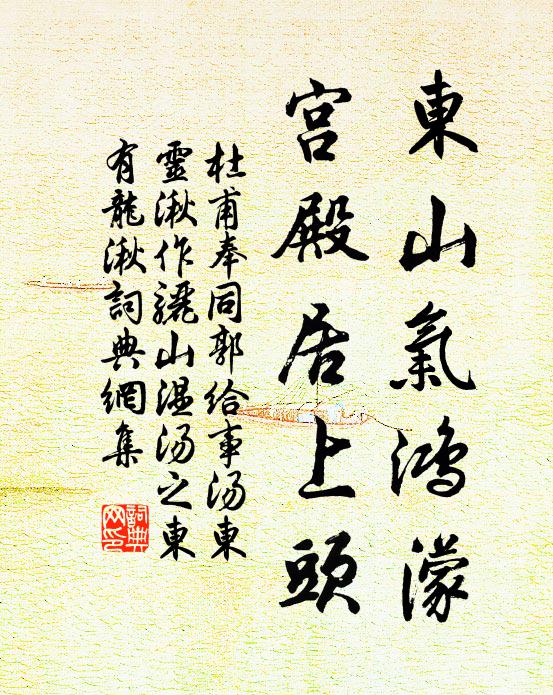 東山氣鴻濛
宮殿居上頭
杜甫奉同郭給事湯東
靈湫作驪山溫湯之東
有龍湫詞典網集
詞典
网印